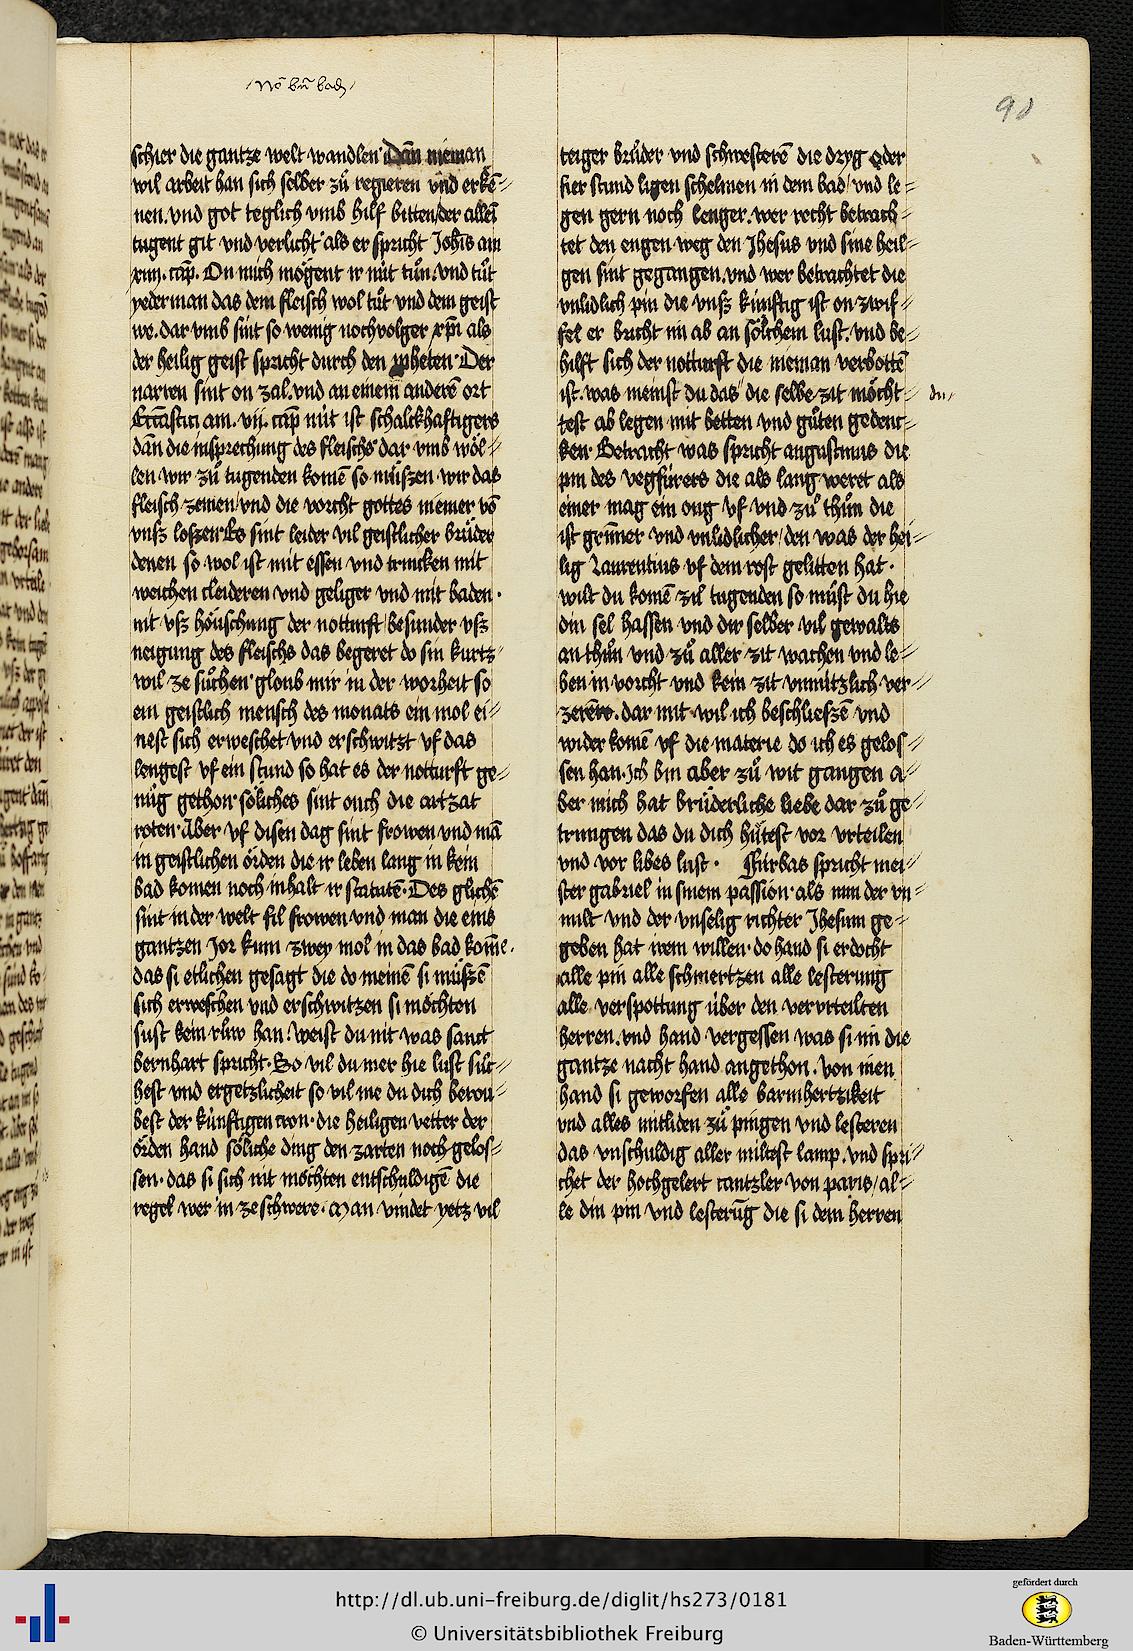 90
schier die gantze welt wandlen dān nieman
wil arbeit han sich selber zů regieren vnd erkē-
nen. vnd got teglich vmb hilf bitten/der allen
tugent git vnd verlicht als er spricht Johīs am
xiiij. cap̄. On mich mögent ir nüt tůn. vnd tůt
yederman das dem fleisch wol tůt vnd dem geist
we. dar vmb sint so wenig nochvolger xpī als
der heilig geist spricht durch den ꝓpheten. Der
narren sint on zal. vnd an einem anderē ort
am. vij. cap̄ nüt ist schalckhaftigers
dān die insprechung des fleischs dar vmb wöl-
len wir zů tugenden komē so müßen wir das
fleisch zemen/vnd die vorcht gottes niemer vō
vnß loßzen Es sint leider vil geistlicher brüder
denen so wol ist mit essen vnd trincken mit
weichen cleideren vnd geliger vnd mit baden.
nit vß höuschung der notturft/besunder vß
neigung des fleischs das begeret do sin kurtz-
wil ze sůchen gloub mir in der worheit so
ein geistlich mensch des monats ein mol ei-
nest sich erweschet vnd erschwitzt vf das
lengest vf ein stund so hat es der notturft ge-
nůg gethon söliches sint ouch die artzat
roten. Aber vf disen dag sint frowen vnd mā
in geistlichen örden die ir leben lang in kein
bad komen noch inhalt ir statutē. Des glichē
sint in der welt fil frowen vnd man die eins
gantzen Jor kum zwey mol in das bad komē.
das si etlichen gesagt die do meinē si müßē
sich erweschen vnd erschwitzen si möchten
sust kein růw han. Weist du nit was sanct
bernhart spricht. So vil du mer hie lust sůc-
hest vnd ergetzlicheit so vil me du dich berou-
best der künftigen cron. die heiligen vetter der
örden hand söliche ding den zarten noch gelos-
sen. das si sich nit möchten entschuldigē die
regel wer in ze schwere. Man vindet yetz vil
teiger brůder vnd schwesterē die dryg oder
fier stund ligen schelmen in dem bad/vnd le-
gen gern noch lenger. wer recht betrach-
tet den engen weg den Jhesus vnd sine heil-
gen sint gegangen. vnd wer betrachtet die
vnlidlich pin die vnß künftig ist on zwif-
fel er bricht im ab an sölchem lust. vnd be-
hilft sich der notturft die nieman verbottē
ist. was meinst du das die selbe zit möcht-
du
test ab legen mit betten vnd gůten gedenc-
ken Betracht was spricht augustinus die
pin des vegfürers die als lang weret als
einer mag ein oug vf vnd zů thůn die
ist grimer vnd vnlidlicher/den was der hei-
lig Laurentius vf dem rost gelitten hat.
wilt du komē zu tugenden so můst du hie
din sel hassen vnd dir selber vil gewalts
an thůn vnd zů aller zit wachen vnd le-
ben in vorcht vnd kein zit vnnützlich ver-
zeren. dar mit wil ich beschließē vnd
wider komē vf die materie do ich es gelos-
sen han. Ich bin aber zů wit gangen a-
ber mich hat brüderliche liebe dar zů ge-
trungen das du dich hütest vor vrteilen
vnd vor libes lust. Fürbas spricht mei-
ster gabriel in sinem passion als nun der vn-
milt vnd der vnselig richter Jhesum ge-
geben hat irem willen. do hand si erdocht
alle pin alle schmertzen alle lesterung
alle verspottung über den vervrteilten
herren. vnd hand vergessen was si im die
gantze nacht hand angethon. Von inen
hand si geworfen alle barmhertzikeit
vnd alles mitliden zů pingen vnd lesteren
das vnschuldig aller miltest lamp. vnd spri-
chet der hochgelert cantzler von paris/al-
le din pin vnd lesterūg die si dem herren
http://dl.ub.uni-freiburg.de/diglit/hs273/0181
© Universitätsbibliothek Freiburg
gefördert durch
Baden-Württemberg